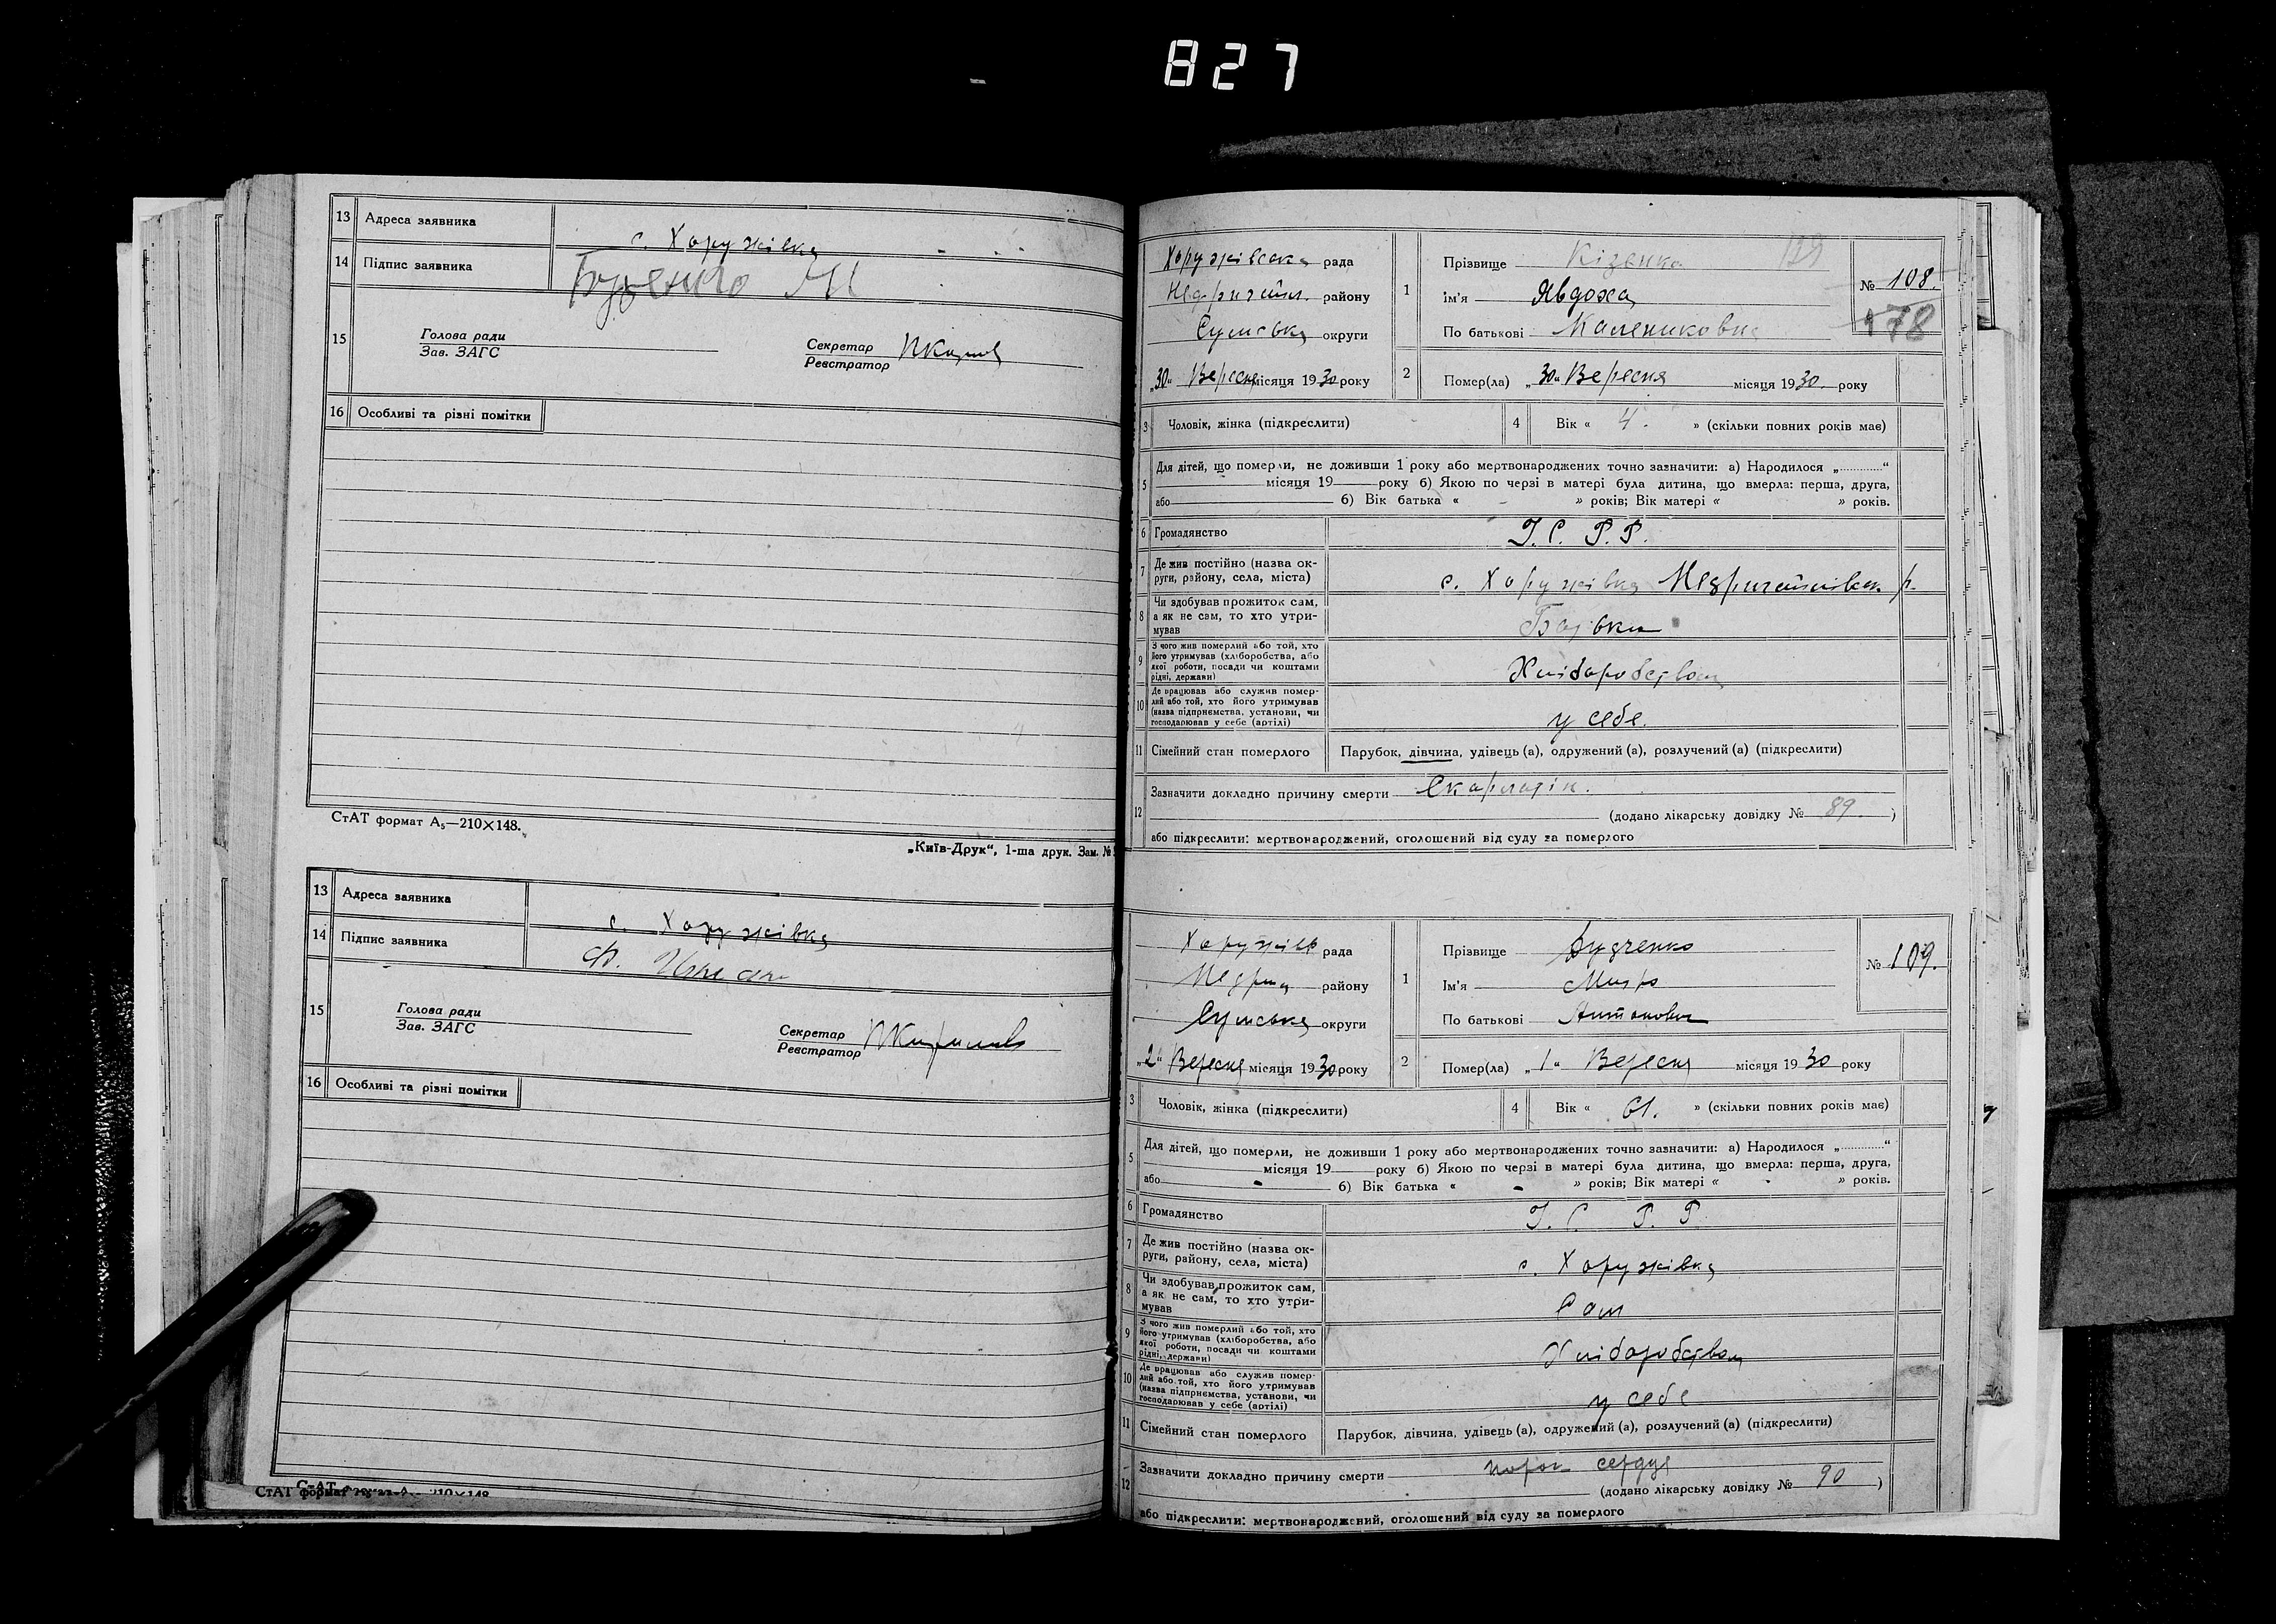 827
13 Адреса заявника с. Хоружівка
14 Підпис заявника
15 Голова ради
Зав. ЗАГС
Секретар
Реєстратор
16 Особливі та різні помітки
СтАТ формат А₅—210×148.
„Київ-Друк“, 1-ша друк. Зам. №
13 Адреса заявника с. Хоружівка
14 Підпис заявника
15 Голова ради
Зав. ЗАГС
Секретар
Реєстратор
16 Особливі та різні помітки
СтАТ формат
Хоружівська рада
Недригайл. району
Сумська округи
„30“ Вересня місяця 1930 року
1 Прізвище Кізенко 129
Ім'я Явдоха
По батькові Калениковна
№ 108.
178
2 Помер(ла) „30“ Вересня місяця 1930. року
3 Чоловік, жінка (підкреслити)
4 Вік « 4. » (скільки повних років має)
5 Для дітей, що померли, не доживши 1 року або мертвонароджених точно зазначити: а) Народилося „............“
місяця 19 року б) Якою по черзі в матері була дитина, що вмерла: перша, друга,
або 6) Вік батька « - » років; Вік матері « » років.
6 Громадянство У.С.Р.Р.
7 Де жив постійно (назва ок-
руги, району, села, міста) с. Хоружівка Недригайлівськ р.
8 Чи здобував прожиток сам,
а як не сам, то хто утри-
мував Батьки
9 З чого жив померлий або той, хто
його утримував (хліборобства, або
якої роботи, посади чи коштами
рідні, держави) Хліборобством
10 Де працював або служив помер-
лий або той, хто його утримував
(назва підприємства, установи, чи
господарював у себе (артілі) у себе.
11 Сімейний стан померлого Парубок, дівчина, удівець (а), одружений (а), розлучений (а) (підкреслити)
12 Зазначити докладно причину смерти Скарлатін.
(додано лікарську довідку № 89. )
або підкреслити: мертвонароджений, оголошений від суду за померлого
Хоружів рада
району
Сумська округи
„2“ Вересня місяця 1930 року
1 Прізвище
Ім'я
По батькові Антонович
№ 109.
2 Помер(ла) „1“ Вересня місяця 1930 року
3 Чоловік, жінка (підкреслити)
4 Вік « 61. » (скільки повних років має)
5 Для дітей, що померли, не доживши 1 року або мертвонароджених точно зазначити: а) Народилося „............“
місяця 19 року б) Якою по черзі в матері була дитина, що вмерла: перша, друга,
або - 6) Вік батька « - » років; Вік матері « - » років.
6 Громадянство У.С.Р.Р.
7 Де жив постійно (назва ок-
руги, району, села, міста) с. Хоружівка
8 Чи здобував прожиток сам,
а як не сам, то хто утри-
мував Сам
9 З чого жив померлий або той, хто
його утримував (хліборобства, або
якої роботи, посади чи коштами
рідні, держави) Хліборобством
10 Де працював або служив помер-
лий або той, хто його утримував
(назва підприємства, установи, чи
господарював у себе (артілі) у себе
11 Сімейний стан померлого Парубок, дівчина, удівець (а), одружений (а), розлучений (а) (підкреслити)
12 Зазначити докладно причину смерти порок серця
(додано лікарську довідку № 90 )
або підкреслити: мертвонароджений, оголошений від суду за померлого